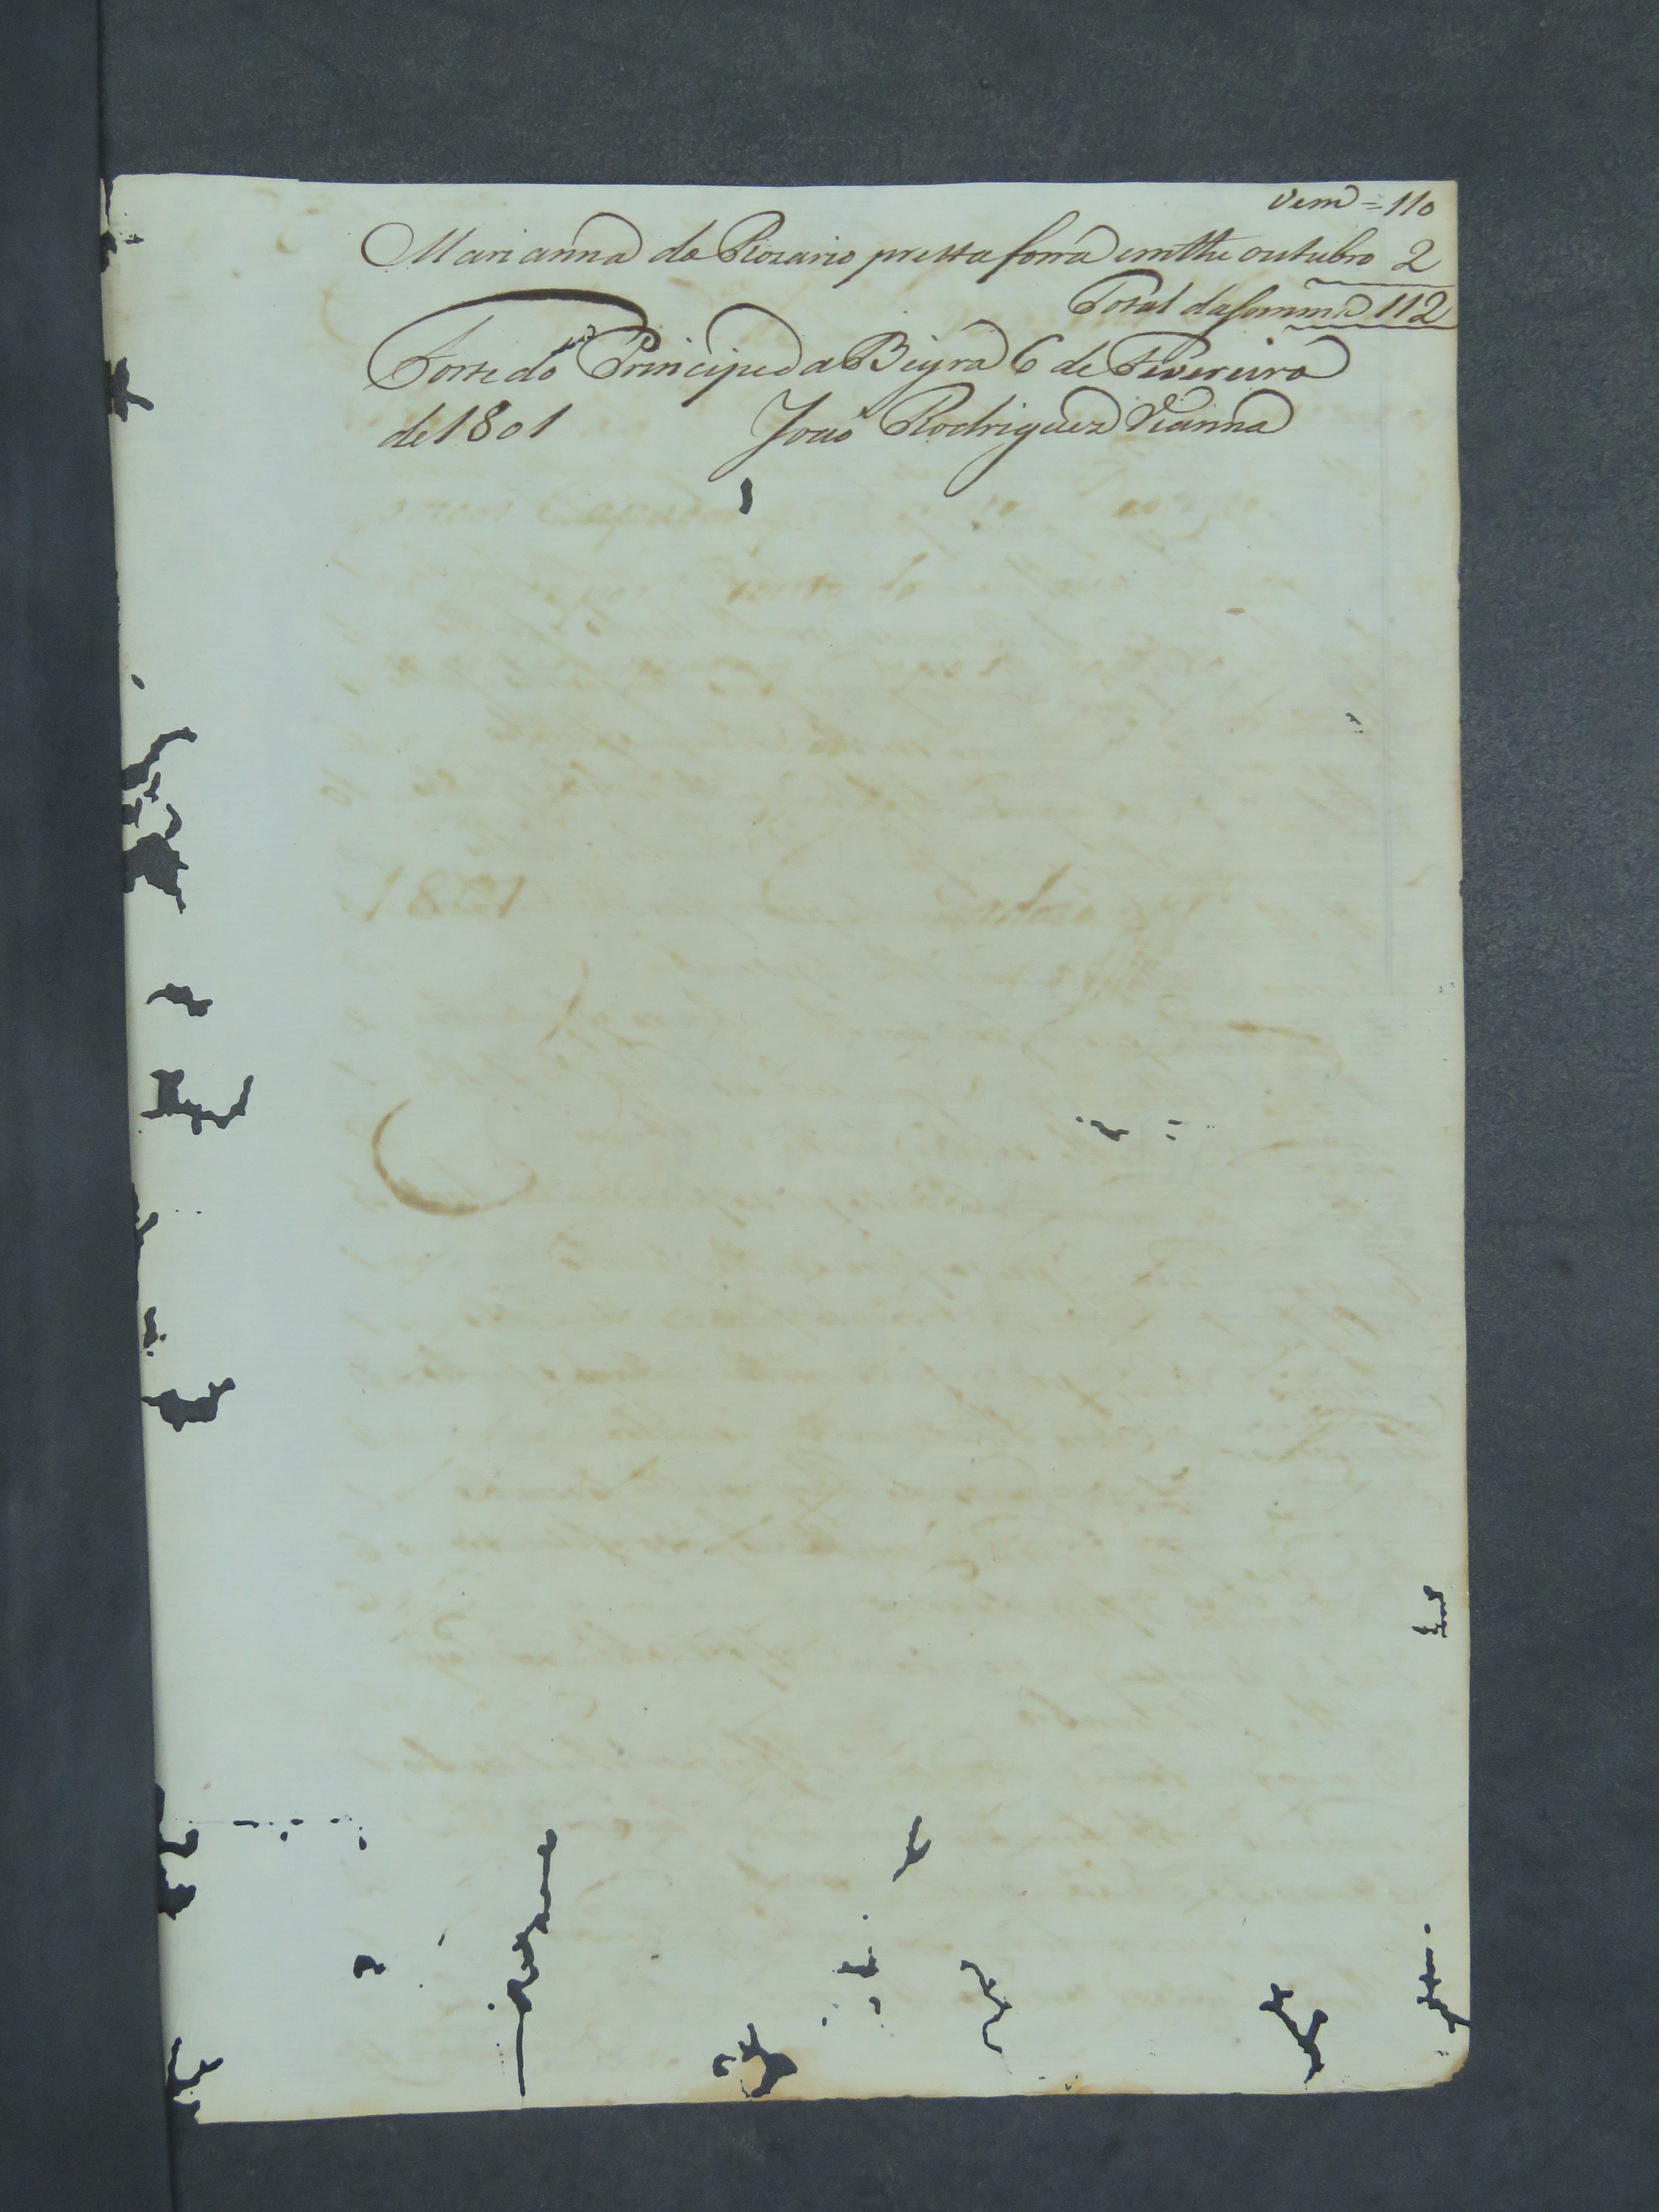 Vem = 110
Marianna do Rozario pretta forra em the outubro 2
Total da somma 112
Forte do Principe da Beyra 6 de Fevereiro
de 1801 João Rodriguez Vianna